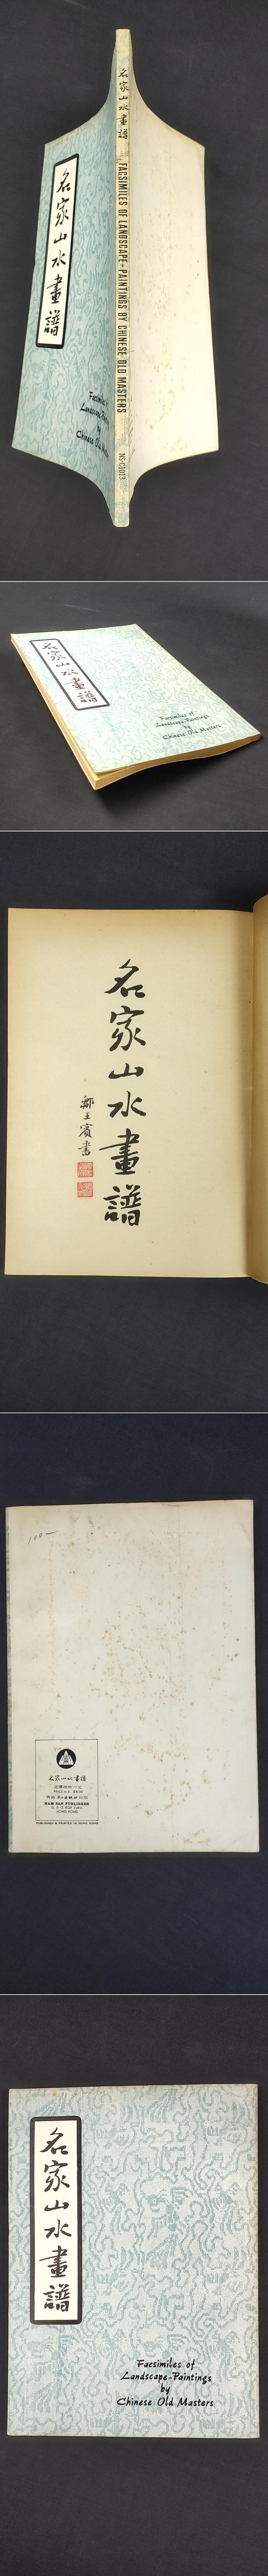 名家山水畫譜
FACSIMILES OF LANDSCAPE-PAINTINGS BY CHINESE OLD MASTERS
NS-C0013
名家山水畫譜
Facsimiles of
Landscape-Paintings
by
Chinese Old Masters
名家山水畫譜
Facsimiles of
Landscape-Paintings
by
Chinese Old Masters
名家山水畫譜
100-
名家山水畫譜
NAM SAN PUBLISHER
HONG KONG
PUBLISHED & PRINTED IN HONG KONG
名家山水畫譜
Facsimiles of
Landscape-Paintings
by
Chinese Old Masters